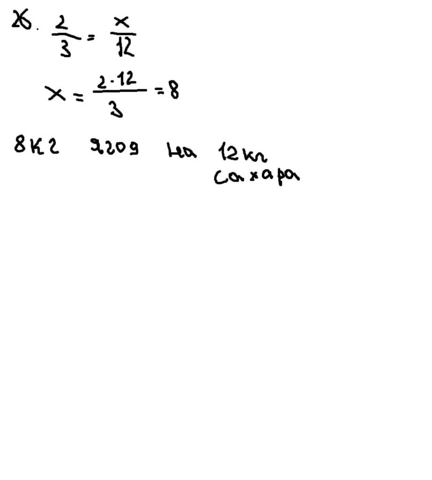 26. 2/3 = x/12
x = 2·12/3 = 8
8 кг ягод на 12 кг
сахара